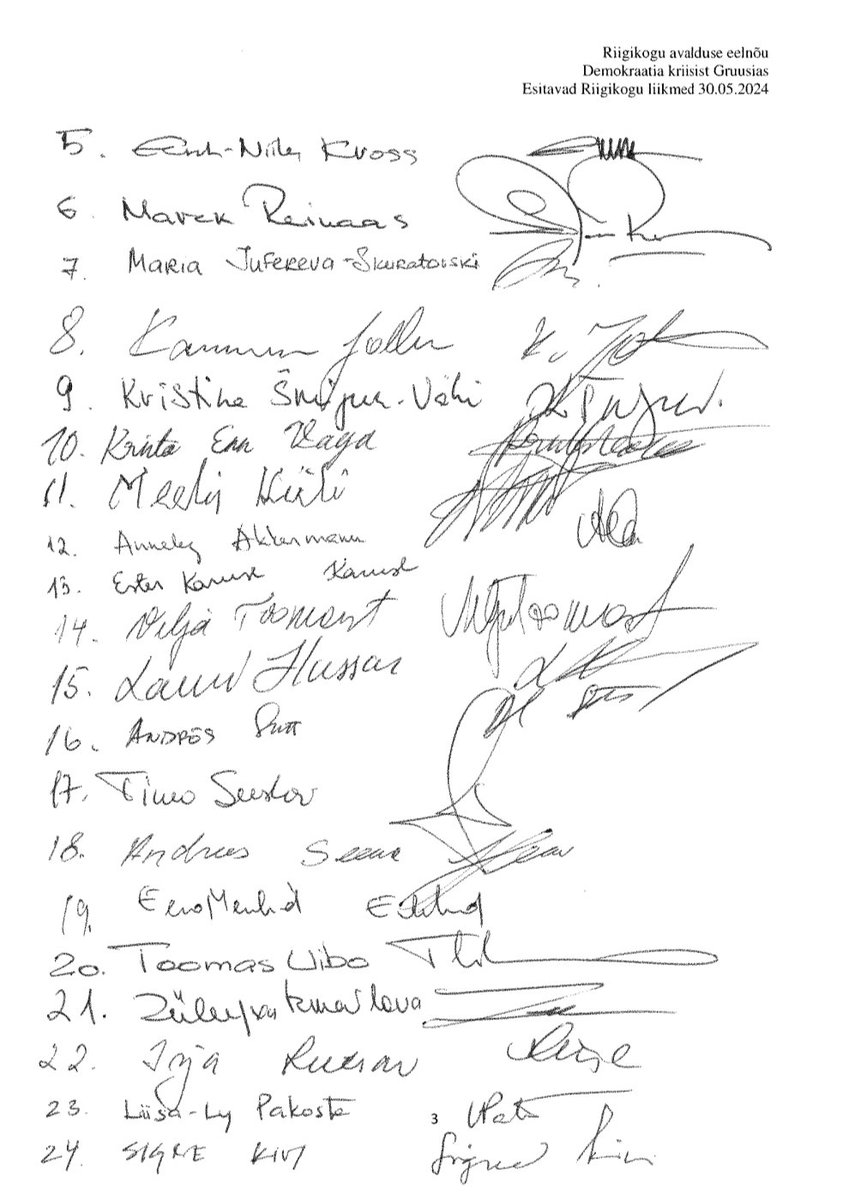 Riigikogu avalduse eelnõu
Demokraatia kriisist Gruusias
Esitavad Riigikogu liikmed 30.05.2024
5. Kross
6. Marek Reinaas
7. Maria Jufereva-Skuratovski
8. Karmen Joller K. Jo
9. Kristina Šmigun-Vähi
10. Krista Enn Vaga
11. Meelis Kiili
12. Annely Akkermann
13. Ester Karuse Karuse
14. Vilja Toomast Vilja Toomast
15. Lauri Hussar
16. ANDRES Sutt
17. Timo Suslov
18. Andrus Seeme
19. Eero Merilind
20. Toomas Uibo
21. Züleyxa Izmailova
22. Irja Lutsar
23. Liisa-Ly Pakosta
3
24. SIGNE KIVI Signe Kivi